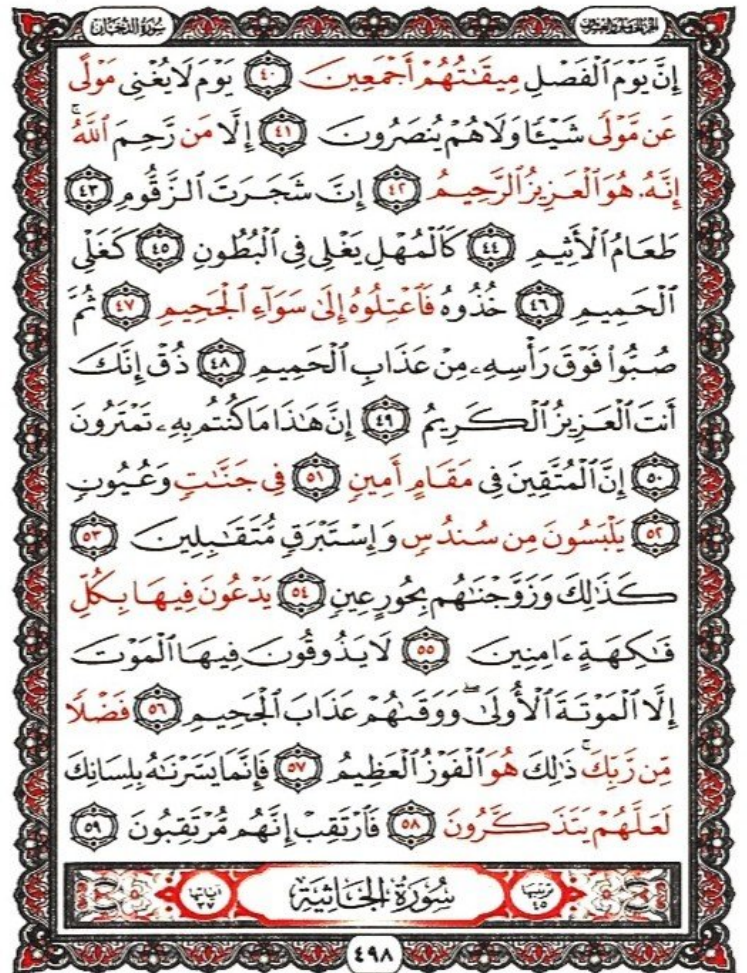 الجزء الخامس والعشرون سُورَةُ الدُّخَانِ
إِنَّ يَوْمَ ٱلْفَصْلِ مِيقَٰتُهُمْ أَجْمَعِينَ ٤٠ يَوْمَ لَا يُغْنِى مَوْلًى
عَن مَّوْلًى شَيْـًٔا وَلَا هُمْ يُنصَرُونَ ٤١ إِلَّا مَن رَّحِمَ ٱللَّهُ ۚ
إِنَّهُۥ هُوَ ٱلْعَزِيزُ ٱلرَّحِيمُ ٤٢ إِنَّ شَجَرَتَ ٱلزَّقُّومِ ٤٣
طَعَامُ ٱلْأَثِيمِ ٤٤ كَٱلْمُهْلِ يَغْلِى فِى ٱلْبُطُونِ ٤٥ كَغَلْىِ
ٱلْحَمِيمِ ٤٦ خُذُوهُ فَٱعْتِلُوهُ إِلَىٰ سَوَآءِ ٱلْجَحِيمِ ٤٧ ثُمَّ
صُبُّوا۟ فَوْقَ رَأْسِهِۦ مِنْ عَذَابِ ٱلْحَمِيمِ ٤٨ ذُقْ إِنَّكَ
أَنتَ ٱلْعَزِيزُ ٱلْكَرِيمُ ٤٩ إِنَّ هَٰذَا مَا كُنتُم بِهِۦ تَمْتَرُونَ
٥٠ إِنَّ ٱلْمُتَّقِينَ فِى مَقَامٍ أَمِينٍ ٥١ فِى جَنَّٰتٍ وَعُيُونٍ
٥٢ يَلْبَسُونَ مِن سُندُسٍ وَإِسْتَبْرَقٍ مُّتَقَٰبِلِينَ ٥٣
كَذَٰلِكَ وَزَوَّجْنَٰهُم بِحُورٍ عِينٍ ٥٤ يَدْعُونَ فِيهَا بِكُلِّ
فَٰكِهَةٍ ءَامِنِينَ ٥٥ لَا يَذُوقُونَ فِيهَا ٱلْمَوْتَ
إِلَّا ٱلْمَوْتَةَ ٱلْأُولَىٰ ۖ وَوَقَىٰهُمْ عَذَابَ ٱلْجَحِيمِ ٥٦ فَضْلًا
مِّن رَّبِّكَ ۚ ذَٰلِكَ هُوَ ٱلْفَوْزُ ٱلْعَظِيمُ ٥٧ فَإِنَّمَا يَسَّرْنَٰهُ بِلِسَانِكَ
لَعَلَّهُمْ يَتَذَكَّرُونَ ٥٨ فَٱرْتَقِبْ إِنَّهُم مُّرْتَقِبُونَ ٥٩
ترتيبها ٤٥ سُورَةُ الجَاثِيَةِ آياتها ٣٧
٤٩٨